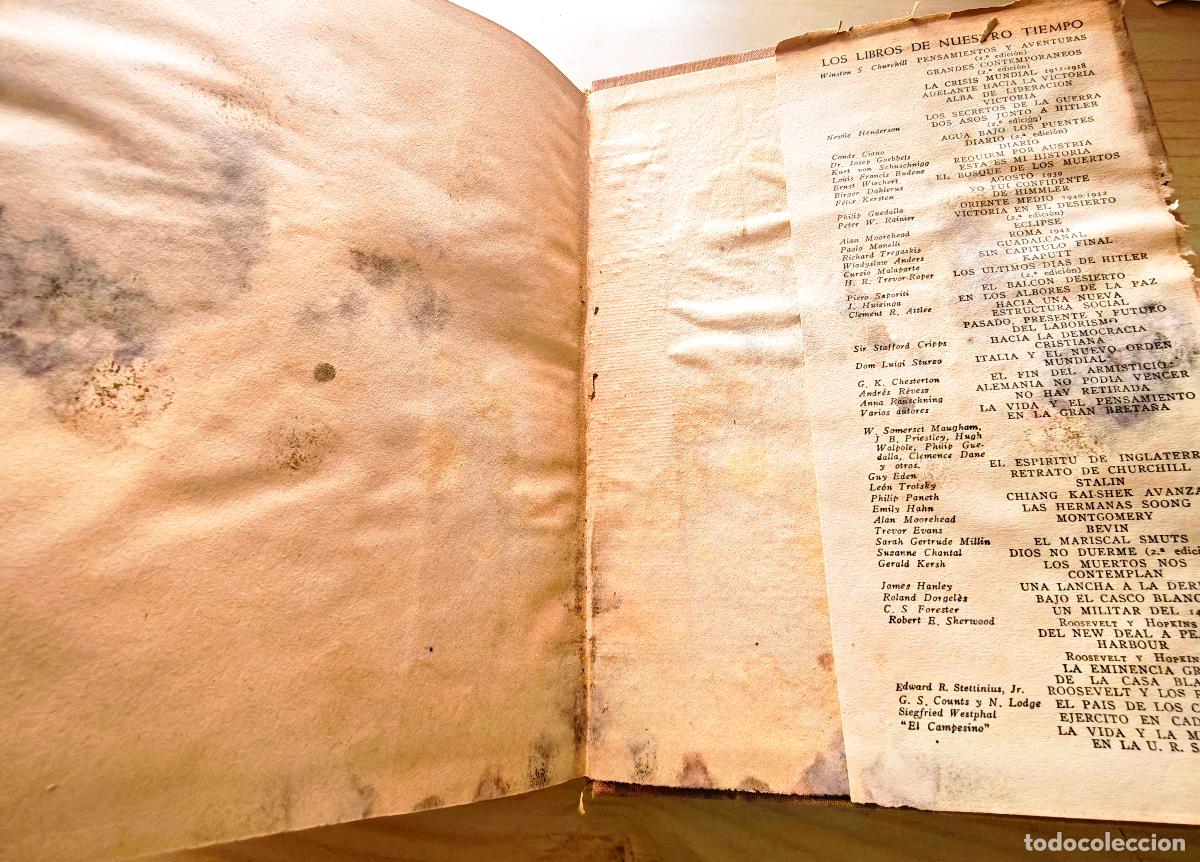 LOS LIBROS DE NUESTRO TIEMPO
Winston S. Churchill PENSAMIENTOS Y AVENTURAS
(2.ª edición)
GRANDES CONTEMPORANEOS
(2.ª edición)
LA CRISIS MUNDIAL 1911-1918
ADELANTE HACIA LA VICTORIA
ALBA DE LIBERACION
VICTORIA
LOS SECRETOS DE LA GUERRA
Nevile Henderson DOS AÑOS JUNTO A HITLER
(2.ª edición)
AGUA BAJO LOS PUENTES
Conde Ciano DIARIO (2.ª edición)
Dr. Josep Goebbels DIARIO
Kurt von Schuschnigg REQUIEM POR AUSTRIA
Louis Francis Budenz ESTA ES MI HISTORIA
Ernst Wiechert EL BOSQUE DE LOS MUERTOS
Birger Dahlerus AGOSTO 1939
Félix Kersten YO FUI CONFIDENTE
DE HIMMLER
Philip Guedalla ORIENTE MEDIO 1940-1942
Peter W. Rainier VICTORIA EN EL DESIERTO
(2.ª edición)
Alan Moorehead ECLIPSE
Paolo Monelli ROMA 1943
Richard Tregaskis GUADALCANAL
Wladyslaw Anders SIN CAPITULO FINAL
Curzio Malaparte KAPUTT
H. R. Trevor-Roper LOS ULTIMOS DIAS DE HITLER
(2.ª edición)
Piero Saporiti EL BALCON DESIERTO
J. Huizinga EN LOS ALBORES DE LA PAZ
Clement R. Attlee HACIA UNA NUEVA
ESTRUCTURA SOCIAL
PASADO, PRESENTE Y FUTURO
DEL LABORISMO
Sir Stafford Cripps HACIA LA DEMOCRACIA
CRISTIANA
Dom Luigi Sturzo ITALIA Y EL NUEVO ORDEN
MUNDIAL
G. K. Chesterton EL FIN DEL ARMISTICIO
Andrés Révész ALEMANIA NO PODIA VENCER
Anna Rauschning NO HAY RETIRADA
Varios autores LA VIDA Y EL PENSAMIENTO
EN LA GRAN BRETAÑA
W. Somerset Maugham,
J B. Priestley, Hugh
Walpole, Philip Gue-
dalla, Clemence Dane
y otros. EL ESPIRITU DE INGLATERR
Guy Eden RETRATO DE CHURCHILL
León Trotsky STALIN
Philip Paneth CHIANG KAI-SHEK AVANZA
Emily Hahn LAS HERMANAS SOONG
Alan Moorehead MONTGOMERY
Trevor Evans BEVIN
Sarah Gertrude Millin EL MARISCAL SMUTS
Suzanne Chantal DIOS NO DUERME (2.ª edici
Gerald Kersh LOS MUERTOS NOS
CONTEMPLAN
James Hanley UNA LANCHA A LA DERI
Roland Dorgelès BAJO EL CASCO BLANC
C. S Forester UN MILITAR DEL 14
Robert E. Sherwood ROOSEVELT Y HOPKINS
DEL NEW DEAL A PE
HARBOUR
ROOSEVELT Y HOPKIN
LA EMINENCIA GR
DE LA CASA BLA
Edward R. Stettinius, Jr. ROOSEVELT Y LOS R
G. S. Counts y N. Lodge EL PAIS DE LOS C
Siegfried Westphal EJERCITO EN CAD
"El Campesino" LA VIDA Y LA M
EN LA U. R. S
todocoleccion